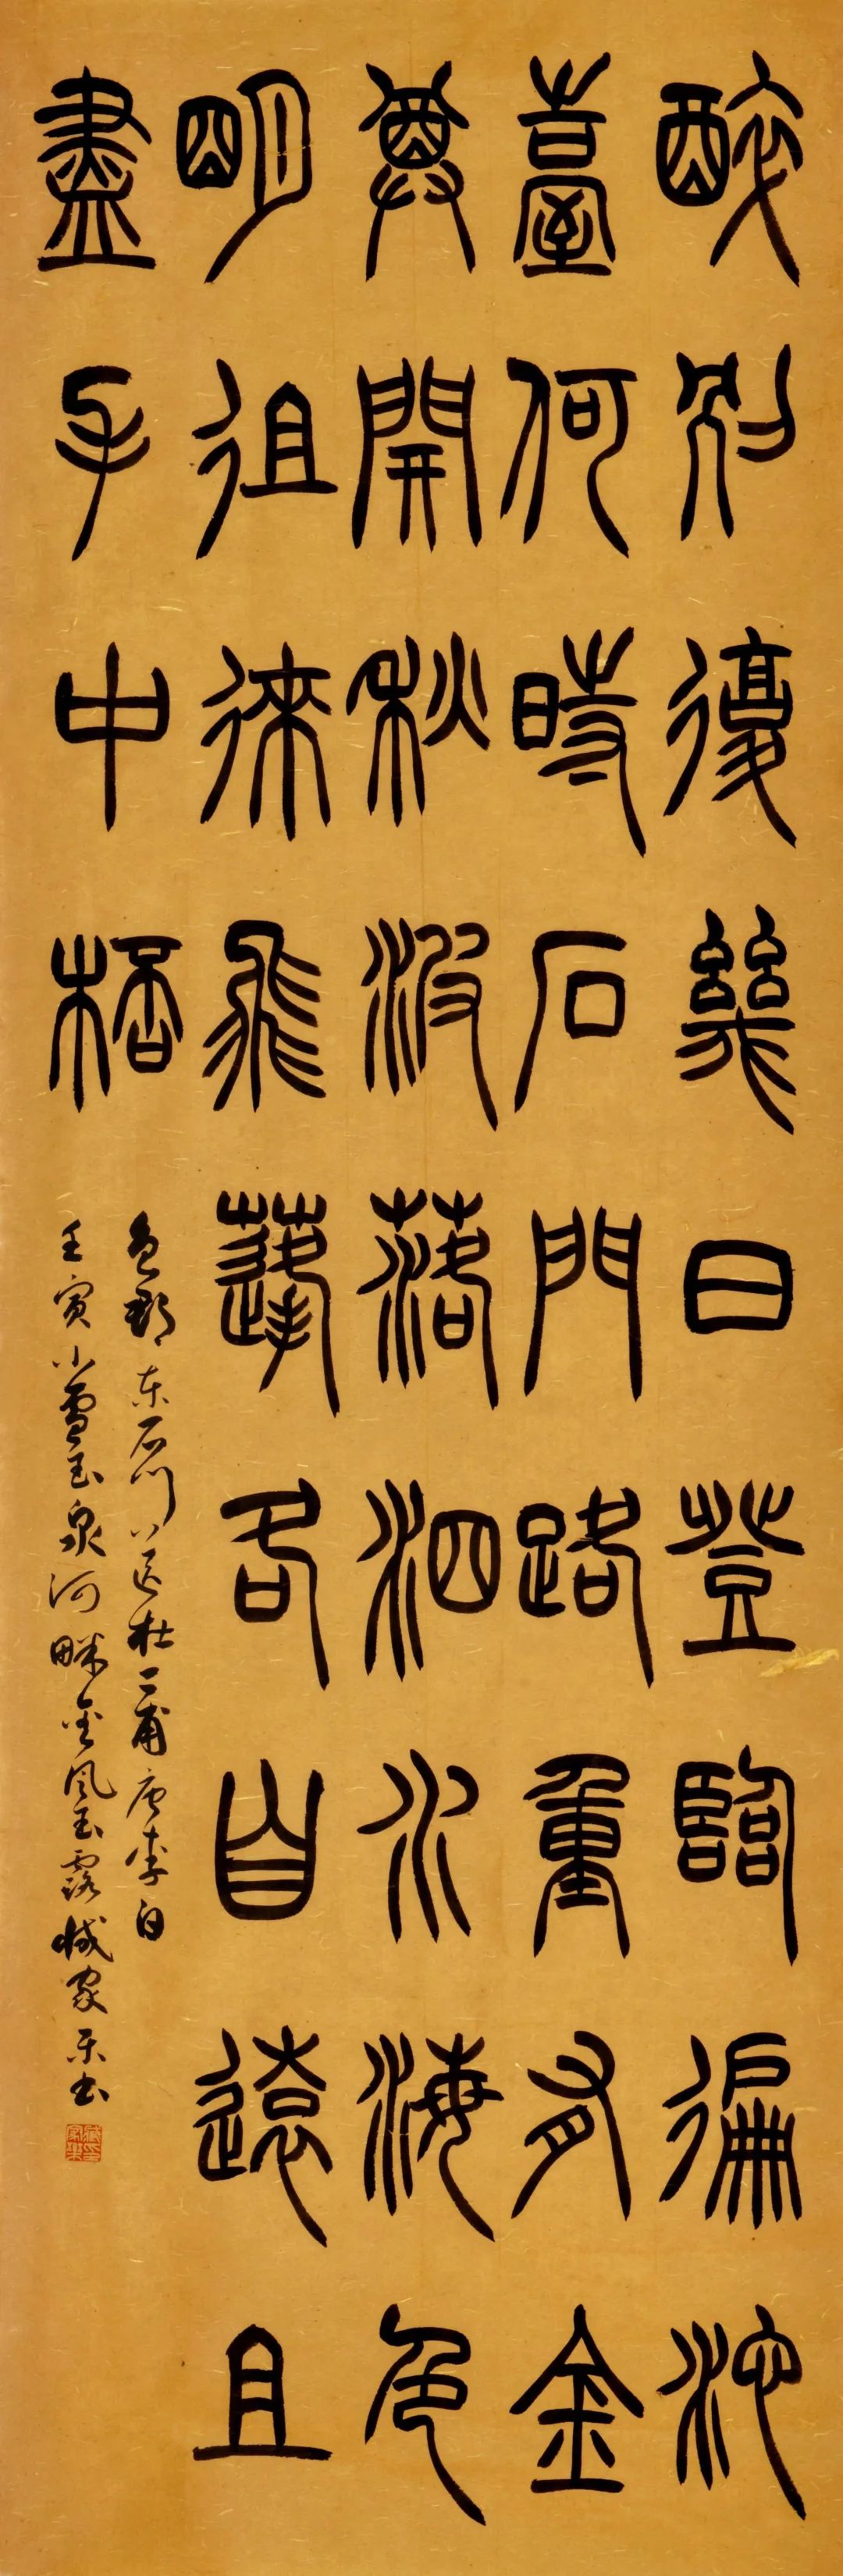 醉別復幾日登臨徧池
臺何時石門路重有金
尊開秋波落泗水海色
明徂徠飛蓬各自遠且
盡手中桮
魯郡东石门送杜二甫唐李白
壬寅小雪玉泉河畔金风玉露臧家乐书